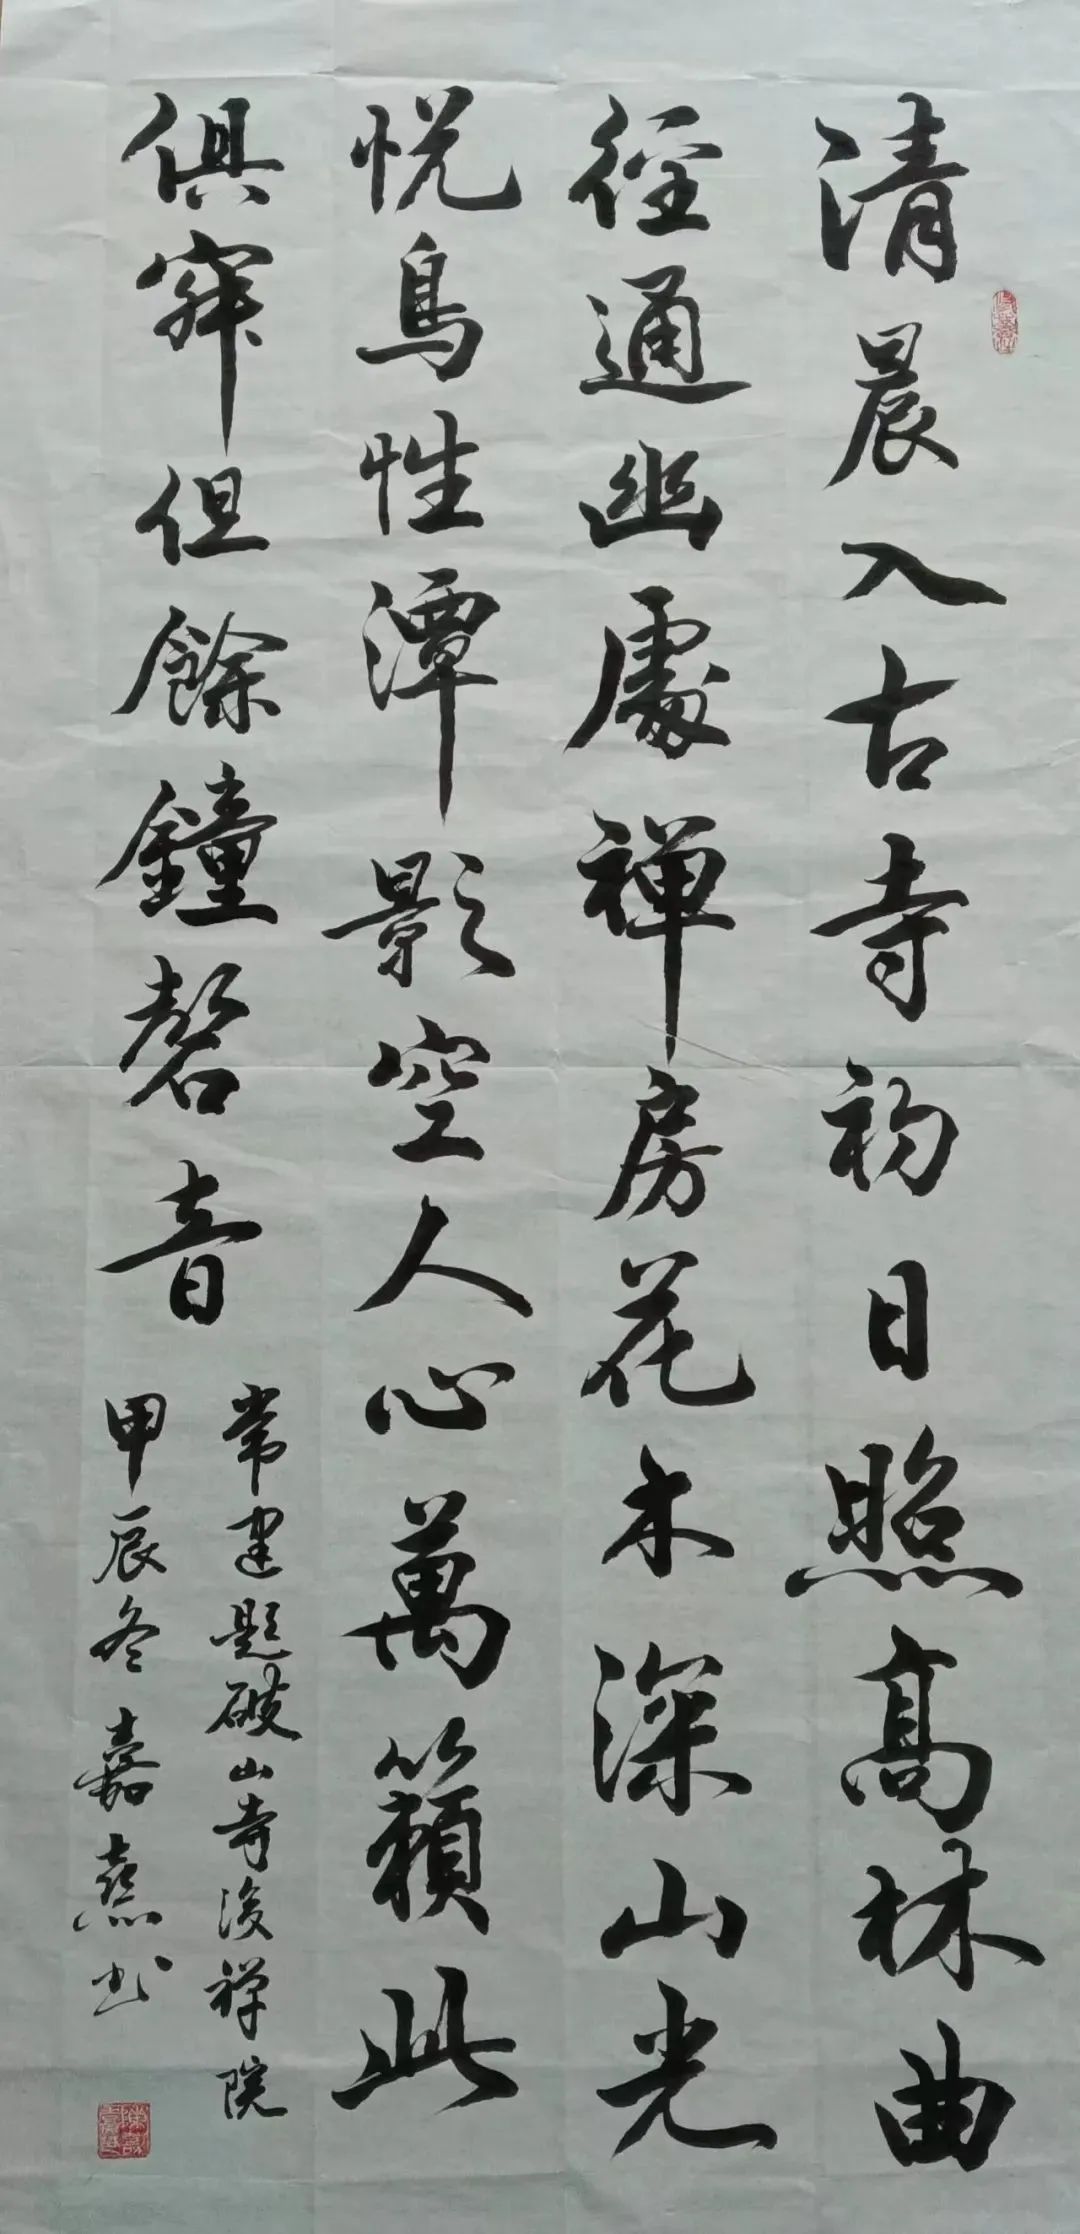 清晨入古寺初日照高林曲
徑通幽處禅房花木深山光
悦鳥性潭影空人心萬籟此
俱寂但餘鐘磬音
常建題破山寺後禅院
甲辰冬嘉燾书